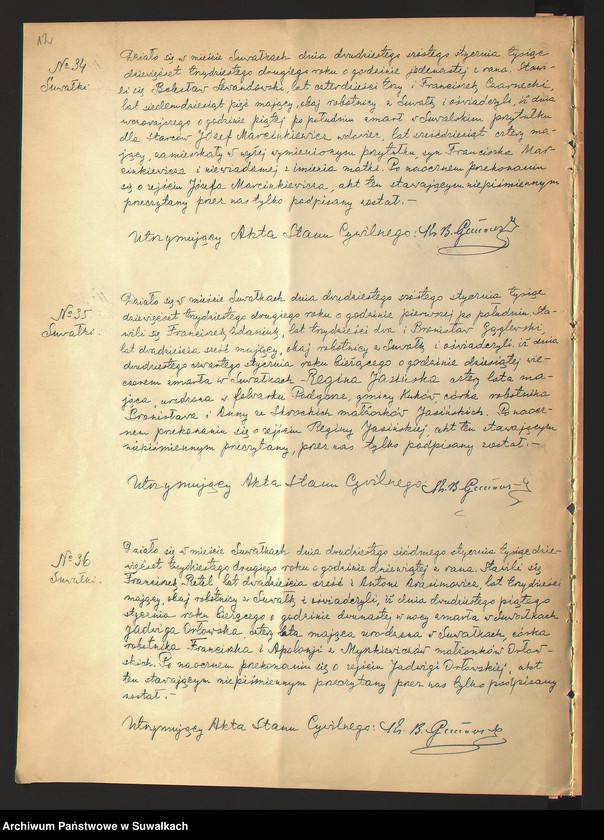 12
№ 34
Suwałki
Działo się w mieście Suwałkach dnia dwudziestego szóstego stycznia tysiąc
dziewięset trzydziestego drugiego roku o godzinie jedenastej z rana. Stawi-
li się Bolesław Lewandowski, lat czterdzieści trzy i Franciszek Czarnecki,
lat siedemdziesiąt pięć mający, obaj robotnicy z Suwałk i oświadczyli, iż dnia
wczorajszego o godzinie piątej po południu zmarł w Suwalskim przytułku
dla starców Józef Marcinkiewicz wdowiec, lat sześćdziesiąt cztery ma-
jący, zamieszkały w wyżej wymienionym przytułku, syn Franciszka Mar-
cinkiewicza i niewiadomej z imienia matki. Po naocznem przekonaniu
się o zejściu Józefa Marcinkiewicza, akt ten stawającym niepiśmiennym
przeczytany przez nas tylko podpisany został.-
Utrzymujący Akta Stanu Cywilnego: Ks. B.
№ 35
Suwałki
Działo się w mieście Suwałkach dnia dwudziestego szóstego stycznia tysiąc
dziewięset trzydziestego drugiego roku o godzinie pierwszej po południu. Sta-
wili się Franciszek Żdaniuk, lat trzydzieści dwa i Bronisław
lat dwadzieścia sześć mający, obaj robotnicy z Suwałk i oświadczyli, iż dnia
dwudziestego czwartego stycznia roku bieżącego o godzinie dziesiątej wie-
czorem zmarła w Suwałkach Regina Jasińska cztery lata ma-
jąca, urodzona w folwarku Podgórze, gminy Kuków, córka robotnika
Bronisława i Anny ze Skrockich małżonków Jasińskich. Po naocz-
nem przekonaniu się o zejściu Reginy Jasińskiej, akt ten stawającym
niepiśmiennym przeczytany, przez nas tylko podpisany został.-
Utrzymujący Akta Stanu Cywilnego: Ks. B.
№ 36
Suwałki.
Działo się w mieście Suwałkach dnia dwudziestego siódmego stycznia tysiąc dzie-
więset trzydziestego drugiego roku o godzinie dziewiątej z rana. Stawili się
Franciszek Petel lat dwadzieścia sześć i Antoni lat trzydzieści
mający, obaj robotnicy z Suwałk i oświadczyli, iż dnia dwudziestego piątego
stycznia roku bieżącego o godzinie dwunastej w nocy zmarła w Suwałkach
Jadwiga Orłowska, cztery lata mająca urodzona w Suwałkach, córka
robotnika Franciszka i Apolonji z Mynkiewiczów małżonków Orłow-
skich. Po naocznem przekonaniu się o zejściu Jadwigi Orłowskiej, akt
ten stawającym niepiśmiennym przeczytany przez nas tylko podpisany
został.-
Utrzymujący Akta Stanu Cywilnego: Ks. B.
Archiwum Państwowe w Suwałkach